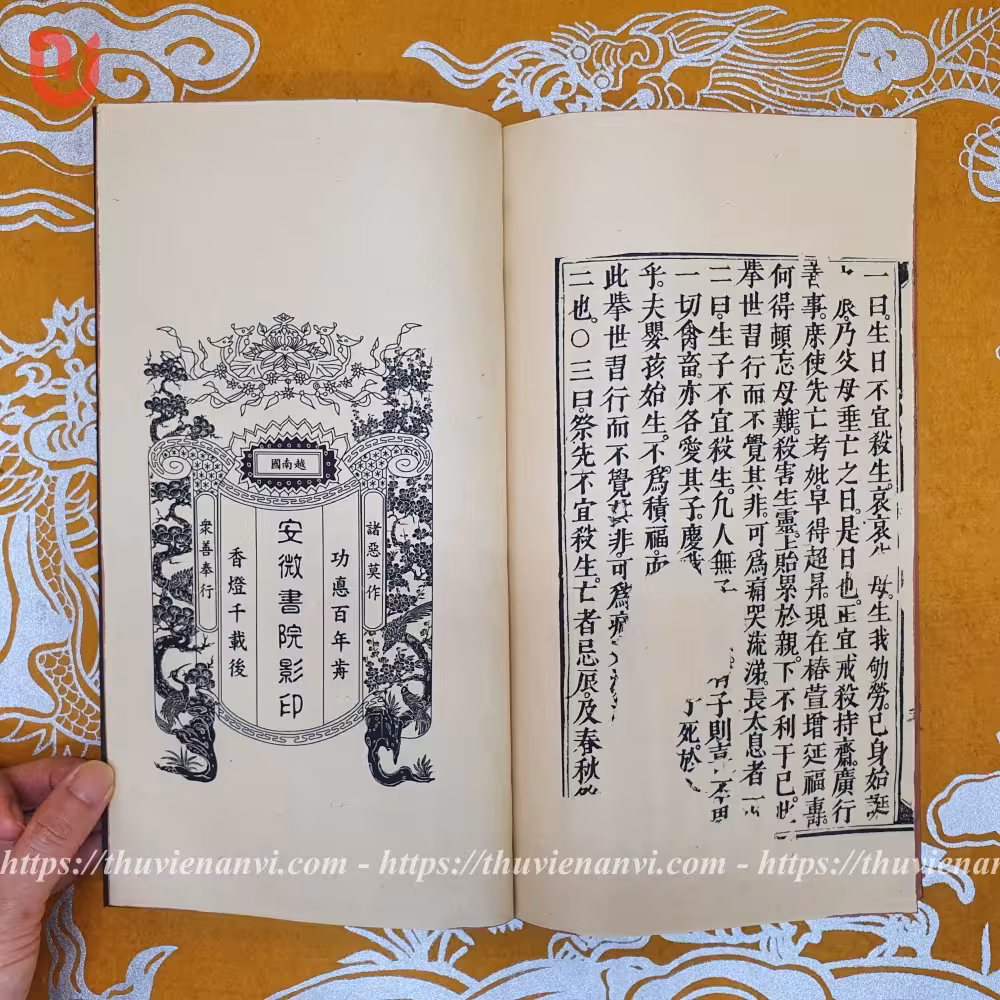 一曰。生日不宜殺生。哀哀 母。生我劬勞。己身始誕
辰。乃父母垂亡之日。是日也。正宜戒殺持齋。廣行
善事。庶使先亡考妣。早得超昇。現在椿萱。增延福壽。
何得頓忘母難。殺害生靈。上貽累於親。下不利于己。此
舉世習行而不覺其非。可爲痛哭流涕。長太息者一
二曰。生子不宜殺生。凢人無 子則喜
一切禽畜。亦各愛其子。慶 死。於
乎。夫嬰孩始生。不爲積福。而
此舉世習行而不覺其非。可爲痛
二也。○三曰。祭先不宜殺生。亡者忌辰。及春秋
越南國
諸惡莫作
功悳百年歬
安微書院影印
香燈千載後
衆善奉行
https://thuvienanvi.com - https://thuvienanvi.com - https://thuvienan